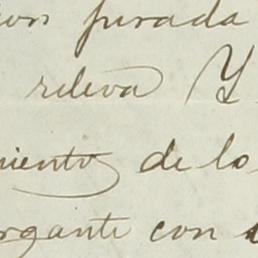 ion jurada
releva Y
miento de lo
rgante con